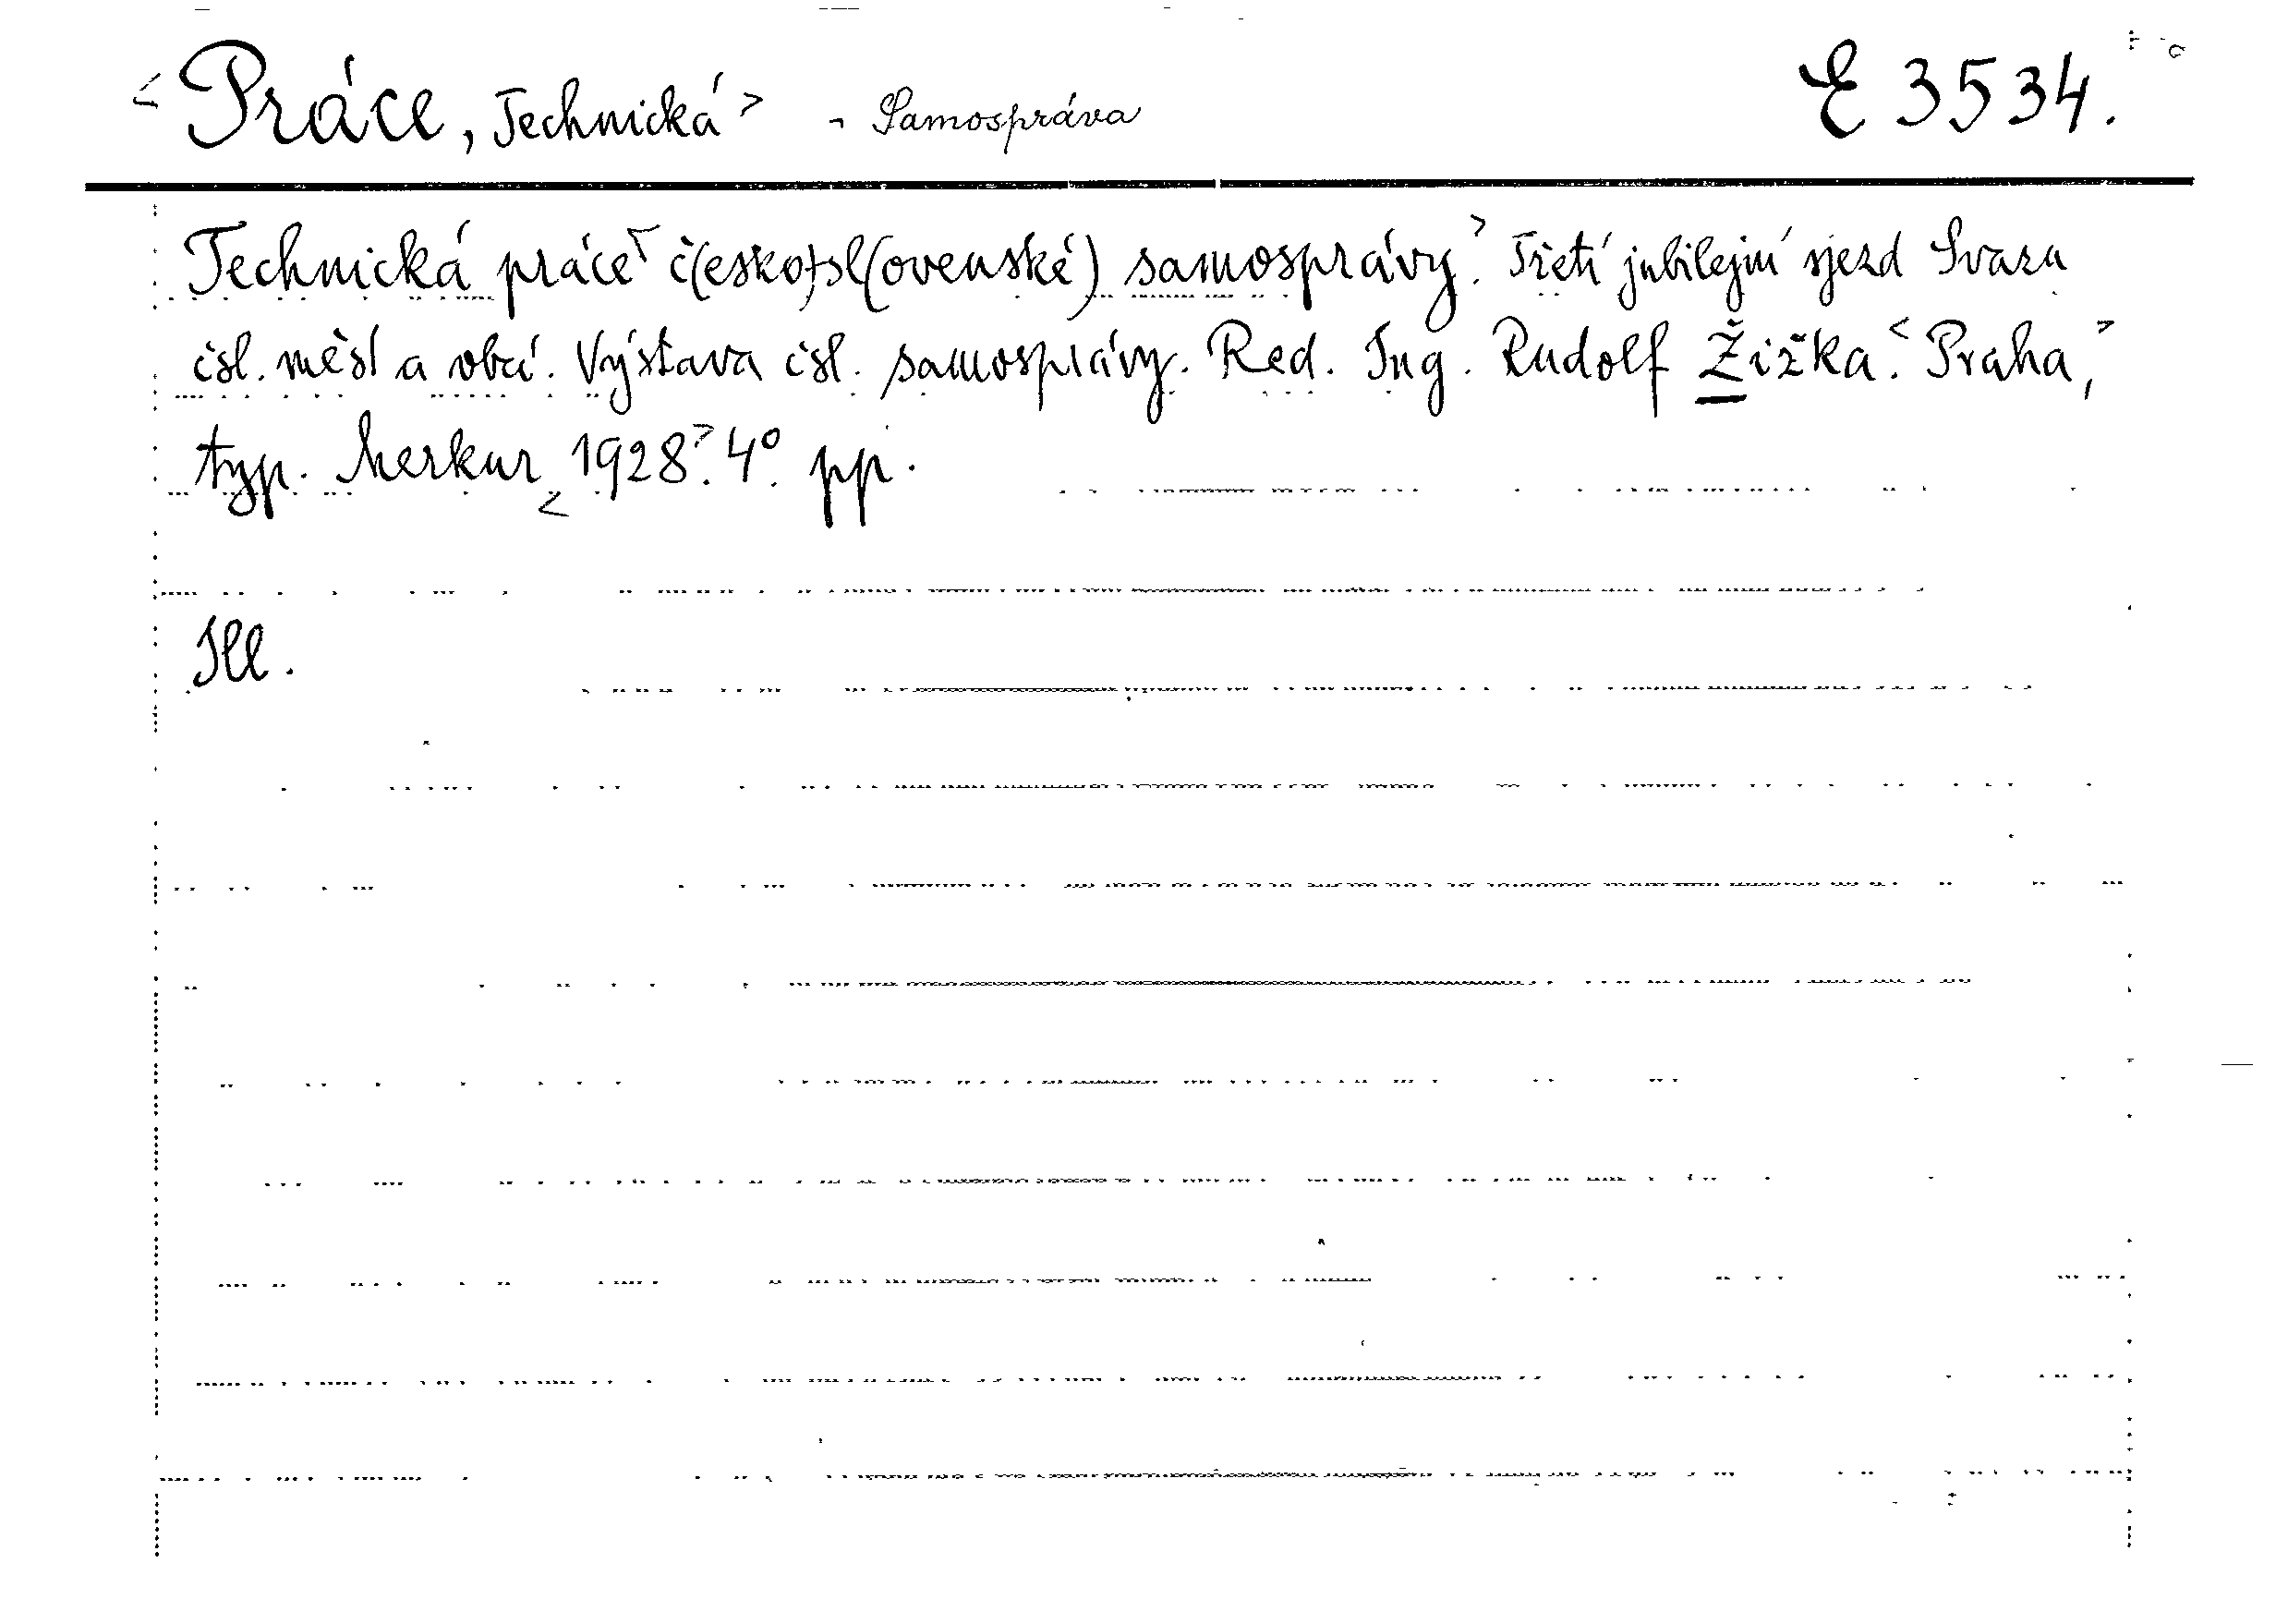 <Práce, Technická> - Samospráva E 3534.
Technická práce č(esko)sl(ovenské) samosprávy. Třetí jubilejní sjezd Svazu
čsl. měst a obcí. Výstava čsl. samosprávy. Red. Ing. Rudolf Žižka. <Praha,>
typ. Merkur <1928>. 4°. pp.
Ill.